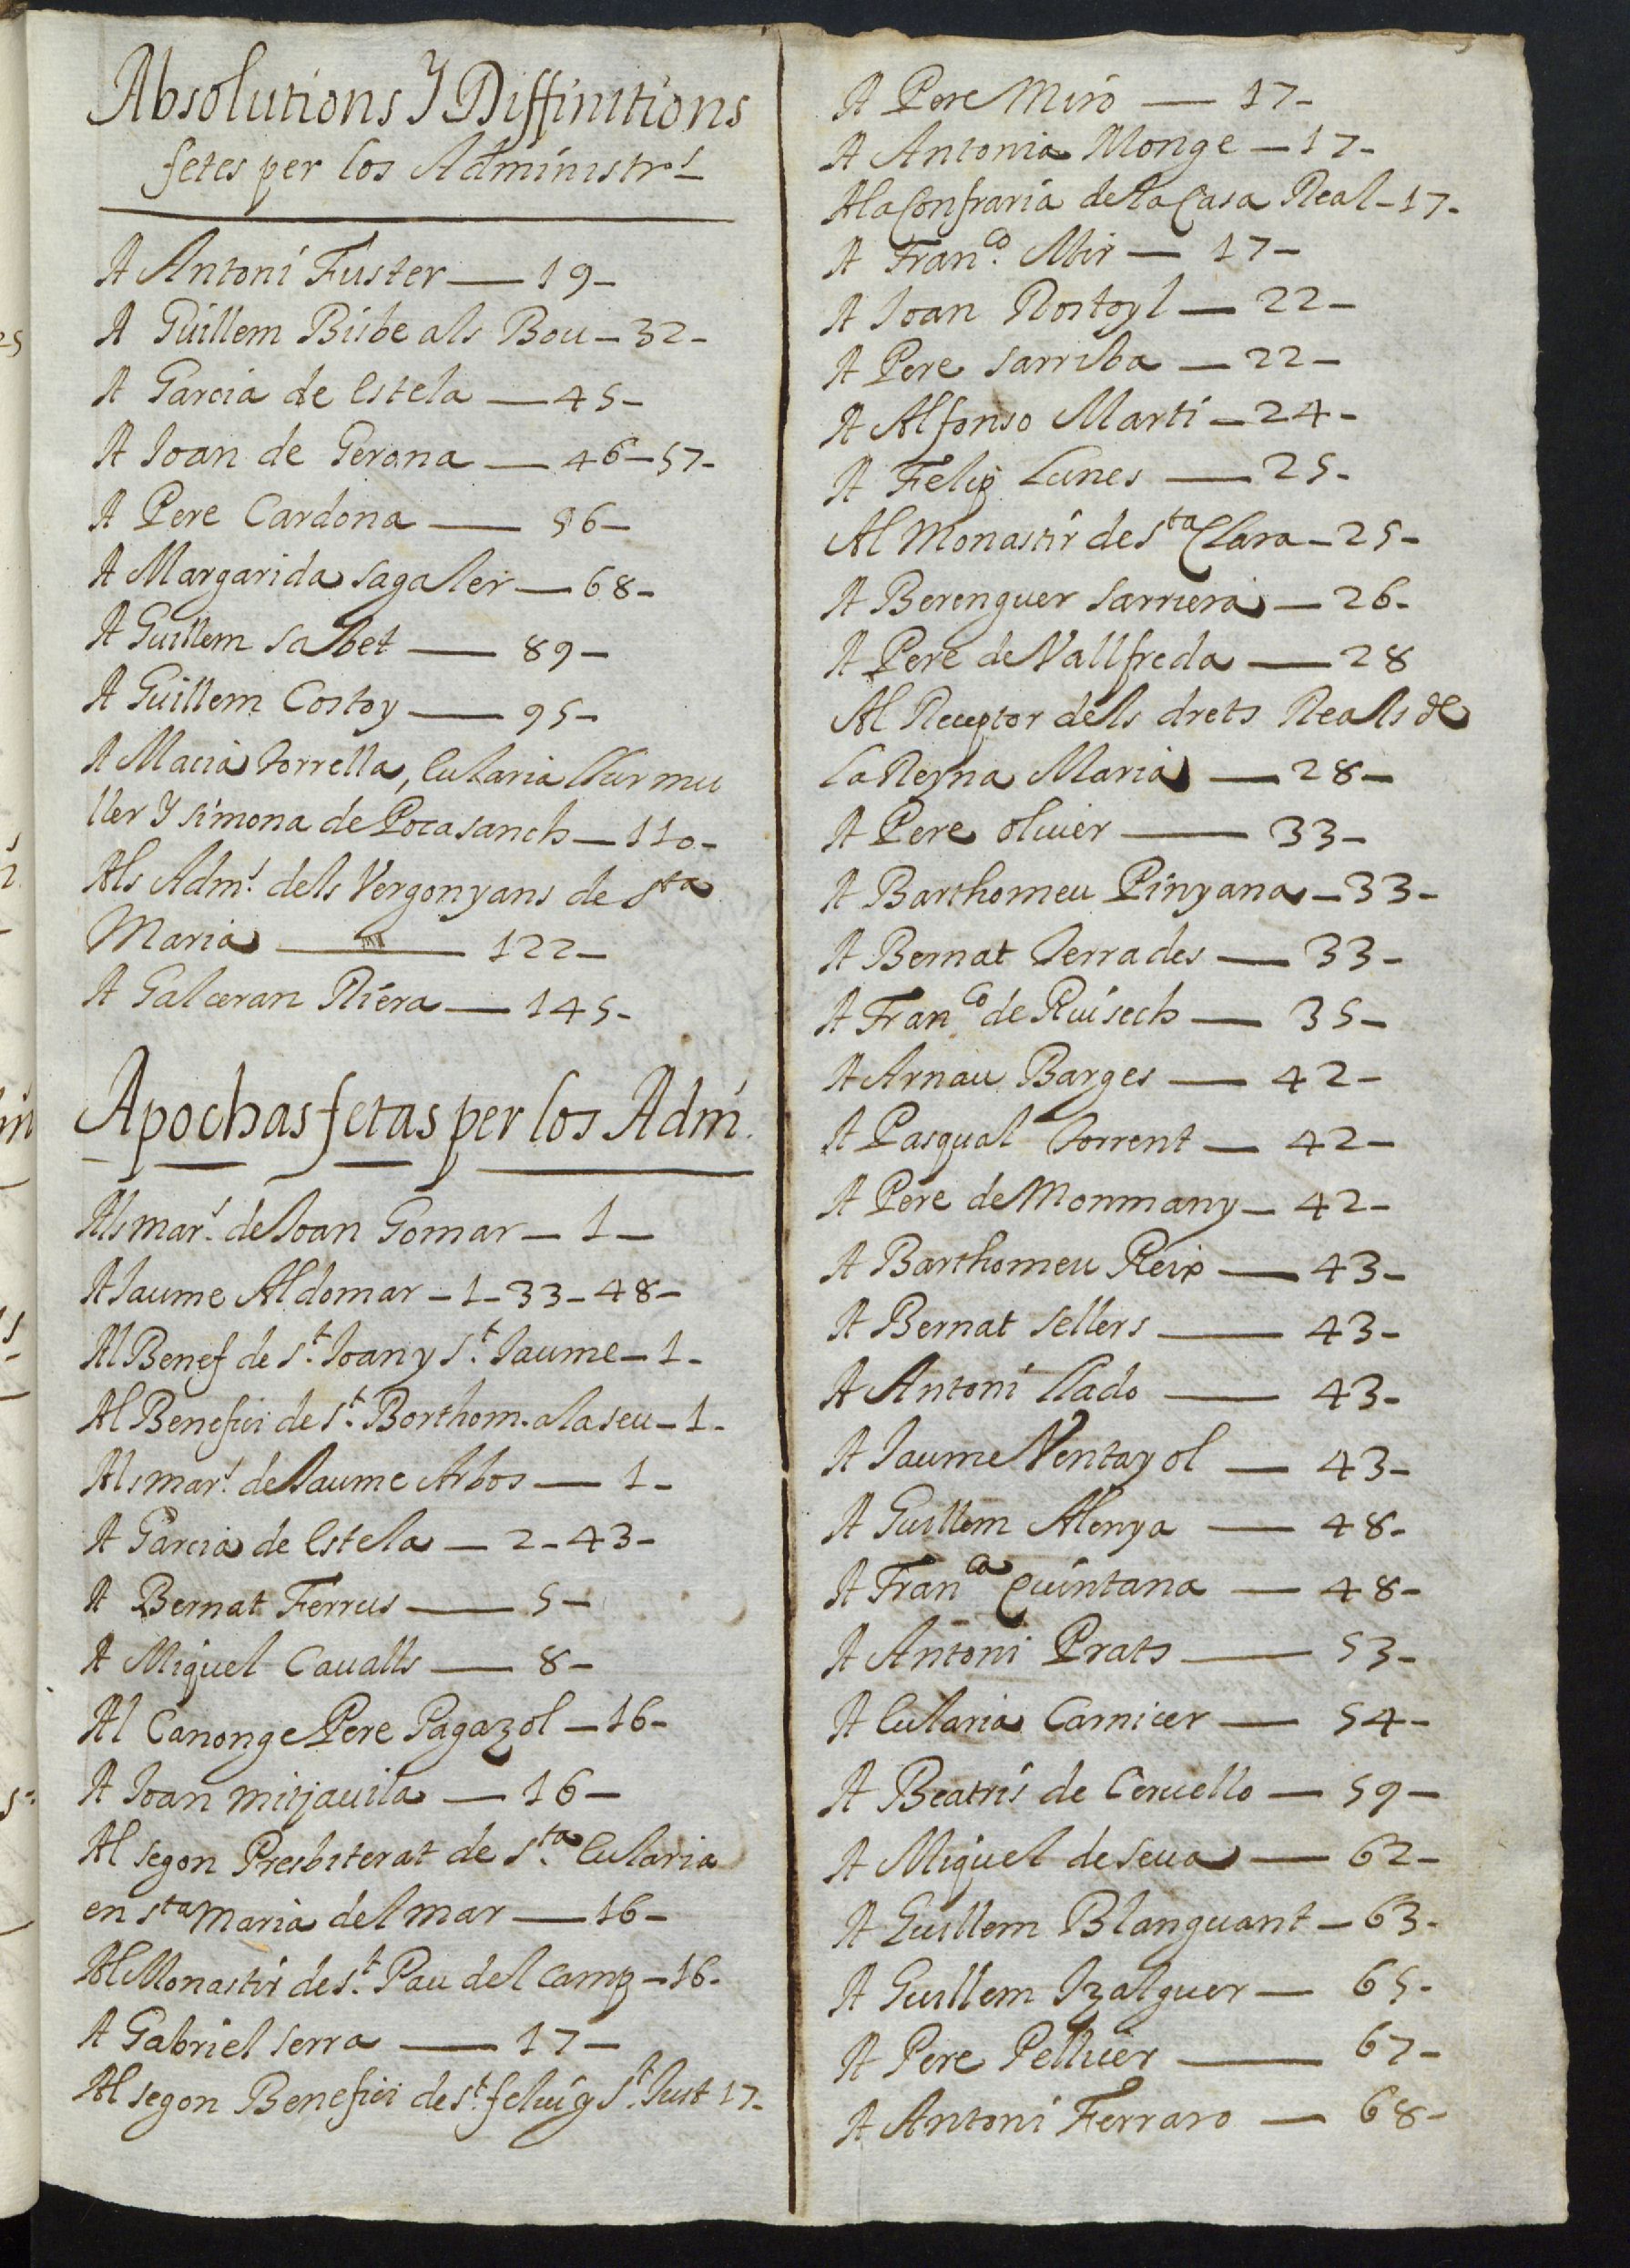 Absolutions Y Diffinitions
fetes per los Administr.s
A Antoni Fuster — 19 –
A Guillem Bisbe als Bou – 32 –
A Garcia de Estela — 45 –
A Joan de Gerona — 46 – 57 –
A Pere Cardona — 56 –
A Margarida Sagaler — 68 –
A Guillem Salbet — 89 –
A Guillem Costoy — 95 –
A Macia Torrella, Eularia llur mu
ller Y Simona de Pocasanch — 110 –
Als Adm.s dels Vergonyans de Sta
Maria — 122 –
A Galceran Riera — 145 –
Apochas fetas per los Adm.
Als mar.s de Joan Gomar — 1 —
A Jaume Aldomar – 1 – 33 – 48 –
Al Benef de S.t Joan y S.t Jaume – 1 –
Al Benefici de S.t Borthom. a la seu – 1 –
Als mar.s de Jaume Arbos — 1 –
A Garcia de Estela — 2 – 43 –
A Bernat Ferrus — 5 –
A Miquel Cavalls — 8 –
Al Canonge Pere Pagazol — 16 –
A Joan mitjavila — 16 –
Al segon Presbiterat de S.ta Eularia
en Sta Maria del mar — 16 –
Al Monastir de S.t Pau del camp – 16 –
A Gabriel Serra — 17 –
Al segon Benefici de S.t feliu y S.t Just 17 –
A Pere Miro — 17 –
A Antonia Monge — 17 –
A la Confraria de la Casa Real – 17 –
A Fran.co Mir — 17 –
A Joan Rostoyl — 22 –
A Pere Sarriba — 22 –
A Alfonso Marti — 24 –
A Felip Lunes — 25 –
Al Monastir de Sta Clara – 25 –
A Berenguer Sarriera — 26 –
A Pere de Vallfreda — 28
Al Receptor dels drets Reals de
La Reyna Maria — 28 –
A Pere olivier — 33 –
A Barthomeu Pinyana – 33 –
A Bernat Terrades — 33 –
A Fran.co de Ruisech — 35 –
A Arnau Barges — 42 –
A Pasqual Torrent — 42 –
A Pere de Monmany – 42 –
A Barthomeu Reix — 43 –
A Bernat Sellers — 43 –
A Antoni Llado — 43 –
A Jaume Ventayol — 43 –
A Guillem Alenya — 48 –
A Fran.ca Quintana — 48 –
A Antoni Prats — 53 –
A Eularia Carnicer — 54 –
A Beatris de Cervello — 59 –
A Miquel de Seva — 62 –
A Guillem Blanguant – 63 –
A Guillem Izalguer — 65 –
A Pere Pellicer — 67 –
A Antoni Ferraro — 68 –